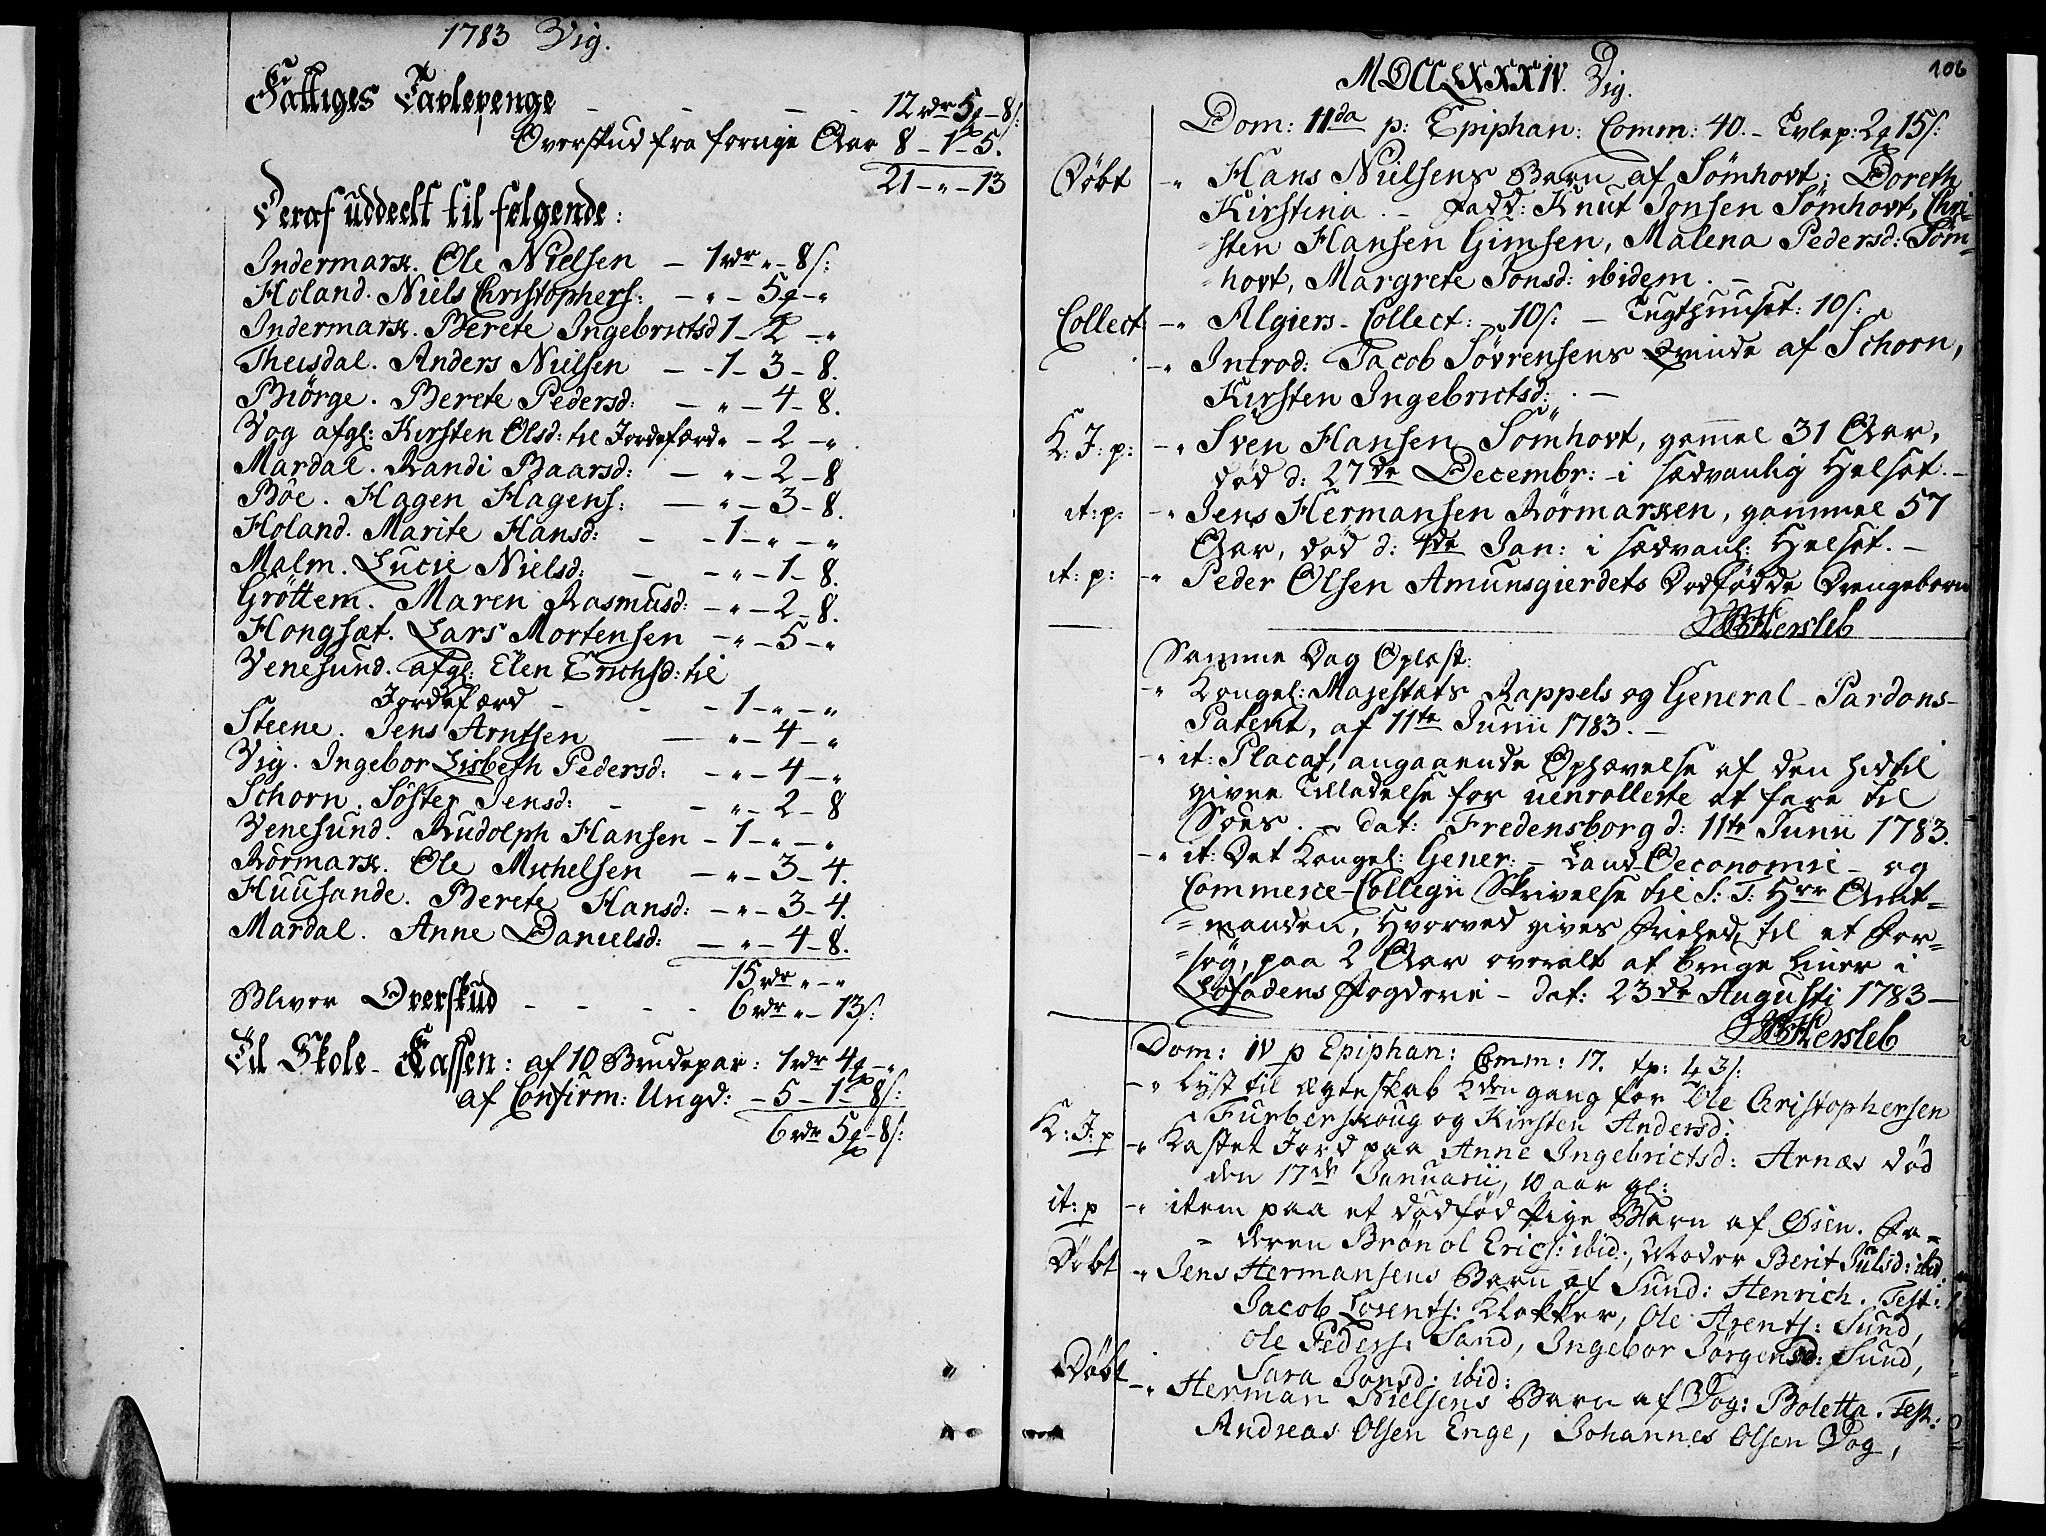 1783 Vig.
Fattiges Tavlepenge - - - - 12 rdr 5 - 8 s:
Overskud fra forrige Aar 8 - 1 - 5.
21 - " - 13
Deraf uddeelt til følgende:
Indermark. Ole Nielsen - 1 rdr " - 8 s:
Holand. Niels Christophers: - " - 5 - "
Indermark. Berete Ingebrictsd 1 - 2 - "
Theisdal. Anders Nielsen - - 1 - 3 - 8.
Biörge. Berete Pedersd: - " - 4 - 8.
Vog afgl: Kirsten Olsd: til Jordefærd " - 2 - "
Mardal. Randi Baarsd: - " - 2 - 8
Böe. Hagen Hagens: - " - 3 - 8.
Holand. Marite Hansd: - - 1 - " - "
Malm. Lucie Nielsd: - - " - 1 - 8.
Gröttem. Maren Rasmusd: - " - 2 - 8.
Hongsæt. Lars Mortensen - " - 5 - "
Venesund. afgl: Elen Erichsd: til
Jordefærd - - - 1 - " - "
Steene. Jens Arntsen - " - 4 - "
Vig. Ingebor Lisbeth Pedersd: - " - 4 - "
Schorn. Söster Jensd: - - " - 2 - 8
Venesund. Rudolph Hansen - 1 - " - "
Rörmark. Ole Michelsen - " - 3 - 4.
Huusande. Berete Hansd: - " - 3 - 4.
Mardal. Anne Danielsd: - " - 4 - 8.
15 rdr " - "
Bliver Overskud - - - - 6 rdr " - 13 s:
Til Skole-Kassen: af 10 Brudepar: 1 rdr 4 - "
af Confirm: Ungd: - 5 - 1 - 8 s:
6 rdr 5 - 8 s:
106
MDCCLXXXIV. Vig.
Dom: IIda p: Epiphan: Comm: 40. - Tvlep: 2 15 s:
Döbt - " Hans Nielsens Barn af Sömhovt: Doreth
Kirstina. - Fadd: Knut Jonsen Sömhovt, Chri-
sten Hansen Gimsen, Malena Pedersd: Söm-
hovt, Margrete Jonsd: ibidem. -
Collect - " Algiers-Collect: - 10 s: - Tugthuuset: 10 s:
- " Introd: Jacob Sövrensens Qvinde af Schorn,
Kirsten Ingebrictsd: . -
K: J: p: - " Sven Hansen Sömhovt, gamel 31 Aar,
död d: 27de Decembr: - i sædvanlig Helsot. -
it: p: - " Jens Hermansen Rörmarken, gammel 57
Aar, död d: 1de Jan: i sædvanl: Helsot. -
it: p: - " Peder Olsen Amunsgierdets Dodfödde Drengebarn
Hersleb
Samme Dag Oplæst:
- " Kongel: Majestæts Rappels og General-Pardons-
Patent, af 11te Junii 1783. -
- " it: Placat, angaaende Ophævelse af den hidtil
givne Tilladelse for uenrollerte at fare til
Söes. - dat: Fredensborg d: 11te Junii 1783.
- " it: Det Kongel: Gener: - Land-Oeconomie- og
Commerce-Collegii Skrivelse til S: T: Hrr Amt-
manden, hvorved gives Friehed til et For-
søg, paa 2 Aar overalt at bruge Liner i
Lofodens Fogderie - dat: 23de Augusti 1783 -
Hersleb
Dom: IV p Epiphan: Comm: 17. tp: 4 3 s:
- " Lyst til ægteskab 2den gang for Ole Christophersen
Furberskoug og Kirsten Andersd:
K: J: p - " Kastet Jord paa Anne Ingebrictsd: Arnæs död
den 17de Januarii, 10 aar gl:
it: p - " item paa et dödföd Pige Barn af Øsen. Fa-
deren Brönol Erics: ibid:, Moder Berit Julsd: ibid:
Döbt - " Jens Hermansens Barn af Sund: Henrich. Test:
Jacob Lorents: Klokker, Ole Arents: Sund,
Ole Peders: Sand, Ingebor Jörgensd: Sund,
Sara Jonsd: ibid:
Döbt - " Herman Nielsens Barn af Vog: Boletta. Test:
Andreas Olsen Enge, Johannes Olsen Vog,